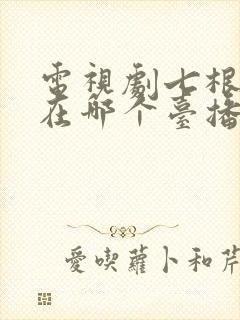 電視劇七根
在哪个臺播
愛喫蘿卜和芹